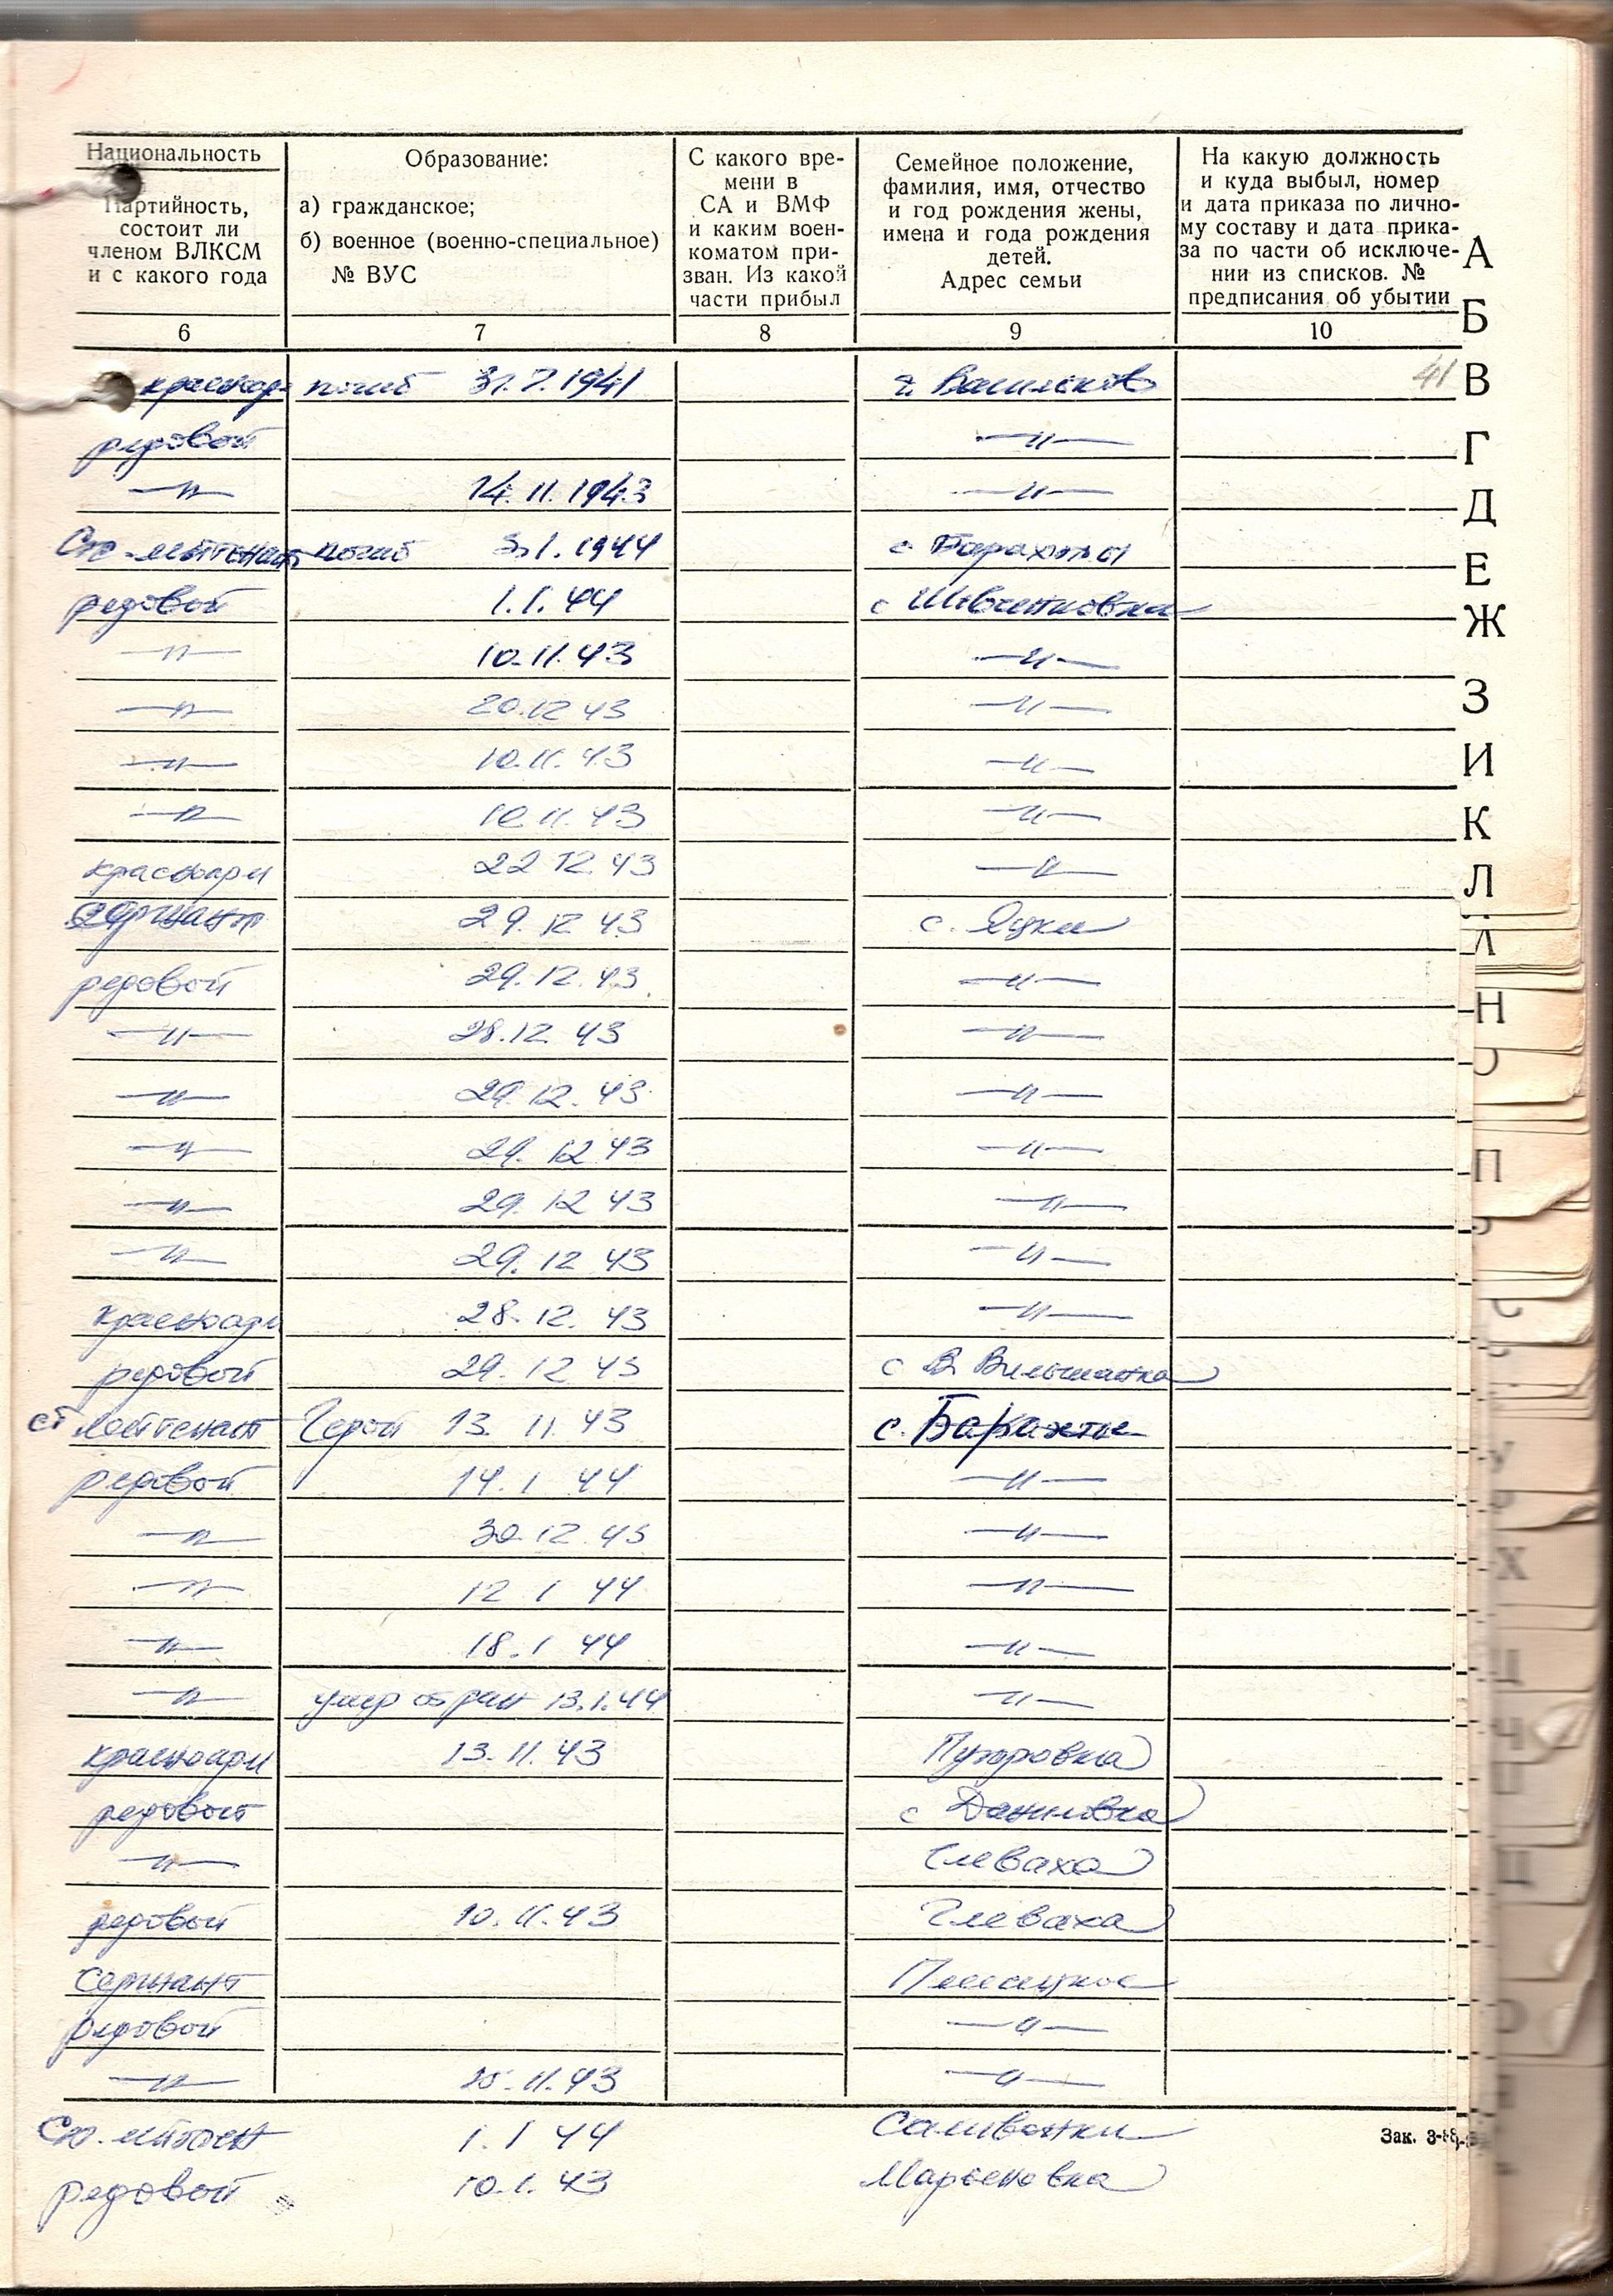 Национальность Образование: С какого вре- Семейное положение, На какую должность
мени в фамилия, имя, отчество и куда выбыл, номер
Партийность, а) гражданское; СА и ВМФ и год рождения жены, и дата приказа по лично-
состоит ли б) военное (военно-специальное) и каким воен- имена и года рождения му составу и дата прика-
членом ВЛКСМ № ВУС коматом при- детей. за по части об исключе-
и с какого года зван. Из какой Адрес семьи нии из списков. №
части прибыл предписания об убытии
6 7 8 9 10
А
Б
В
Г
Д
Е
Ж
З
И
К
Л
Л
Н
О
П
Р
С
У
Х
Ц
Ч
Щ
погиб 31.7.1941 г. Васильков 41
редовой —"—
—"— 14.11.1943 —"—
погиб 3.1.1944 с Барахты
редовой 1.1.44 с Шевченковка
—"— 10.11.43 —"—
—"— 20.12 43 —"—
—"— 10.11.43 —"—
—"— 10 11.43 —"—
красноарм 22 12.43 —"—
сержант 29.12 43 с. Яцки
редовой 29.12.43 —"—
—"— 28.12.43 —"—
—"— 29.12.43 —"—
—"— 29.12 43 —"—
—"— 29.12 43 —"—
—"— 29.12 43 —"—
красноарм 28.12.43 —"—
редовой 29.12 43 с В Вильшанка
ст лейтенант Герой 13.11.43 с. Барахты
редовой 14.1 44 —"—
—"— 30.12.43 —"—
—"— 12 1 44 —"—
—"— 18.1 44 —"—
—"— умер от ран 13.1.44 —"—
красноарм 13.11.43
редовой с Даниловка
—"— Глеваха
редовой 10.11.43 Глеваха
Сержант
редовой —"—
—"— —"—
1.1 44 Саливонки
редовой 10.1.43 Марьеновка
Зак. 3-